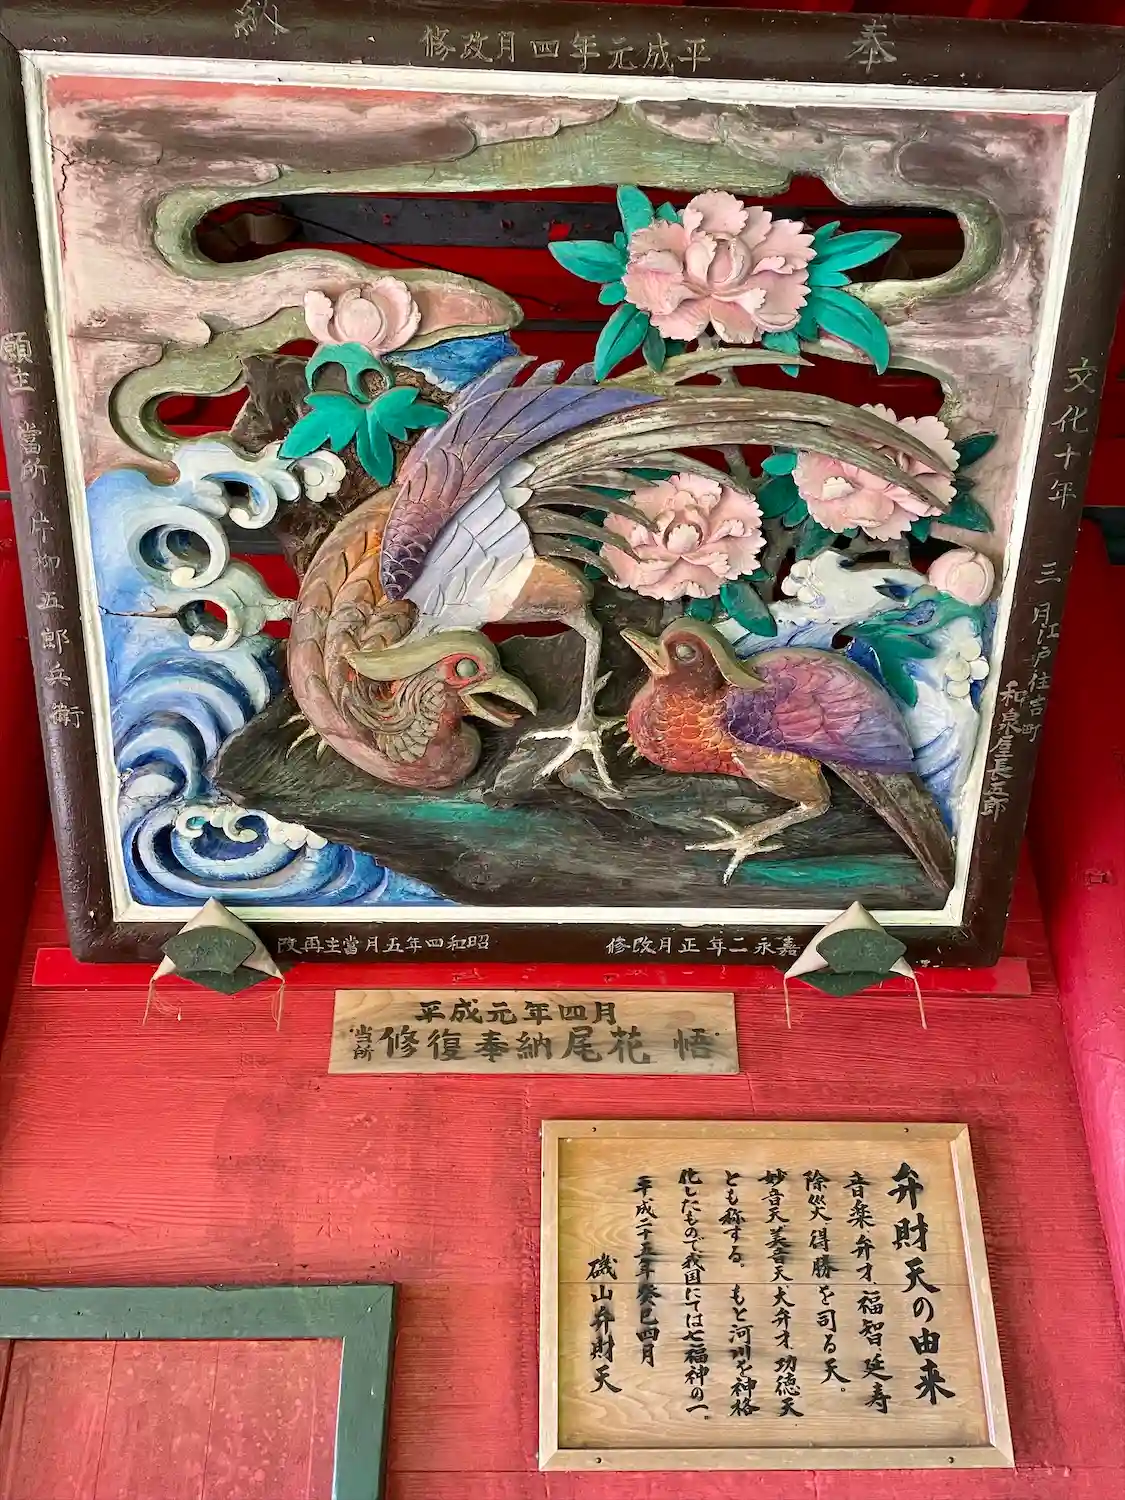 奉納
平成元年四月改修
文化十年三月江戸住吉町
和泉屋長五郎
願主 當所 片柳五郎兵衛
嘉永二年正月改修
昭和四年五月當主再改
平成元年四月
当所 修復奉納尾花 悟
弁財天の由来
音楽・弁才・福智・延寿
除災・得勝を司る天。
妙音天・美音天・大弁才功徳天
とも称する。もと河川を神格
化したもので我国にては七福神の一。
平成二十五年癸巳四月
磯山弁財天